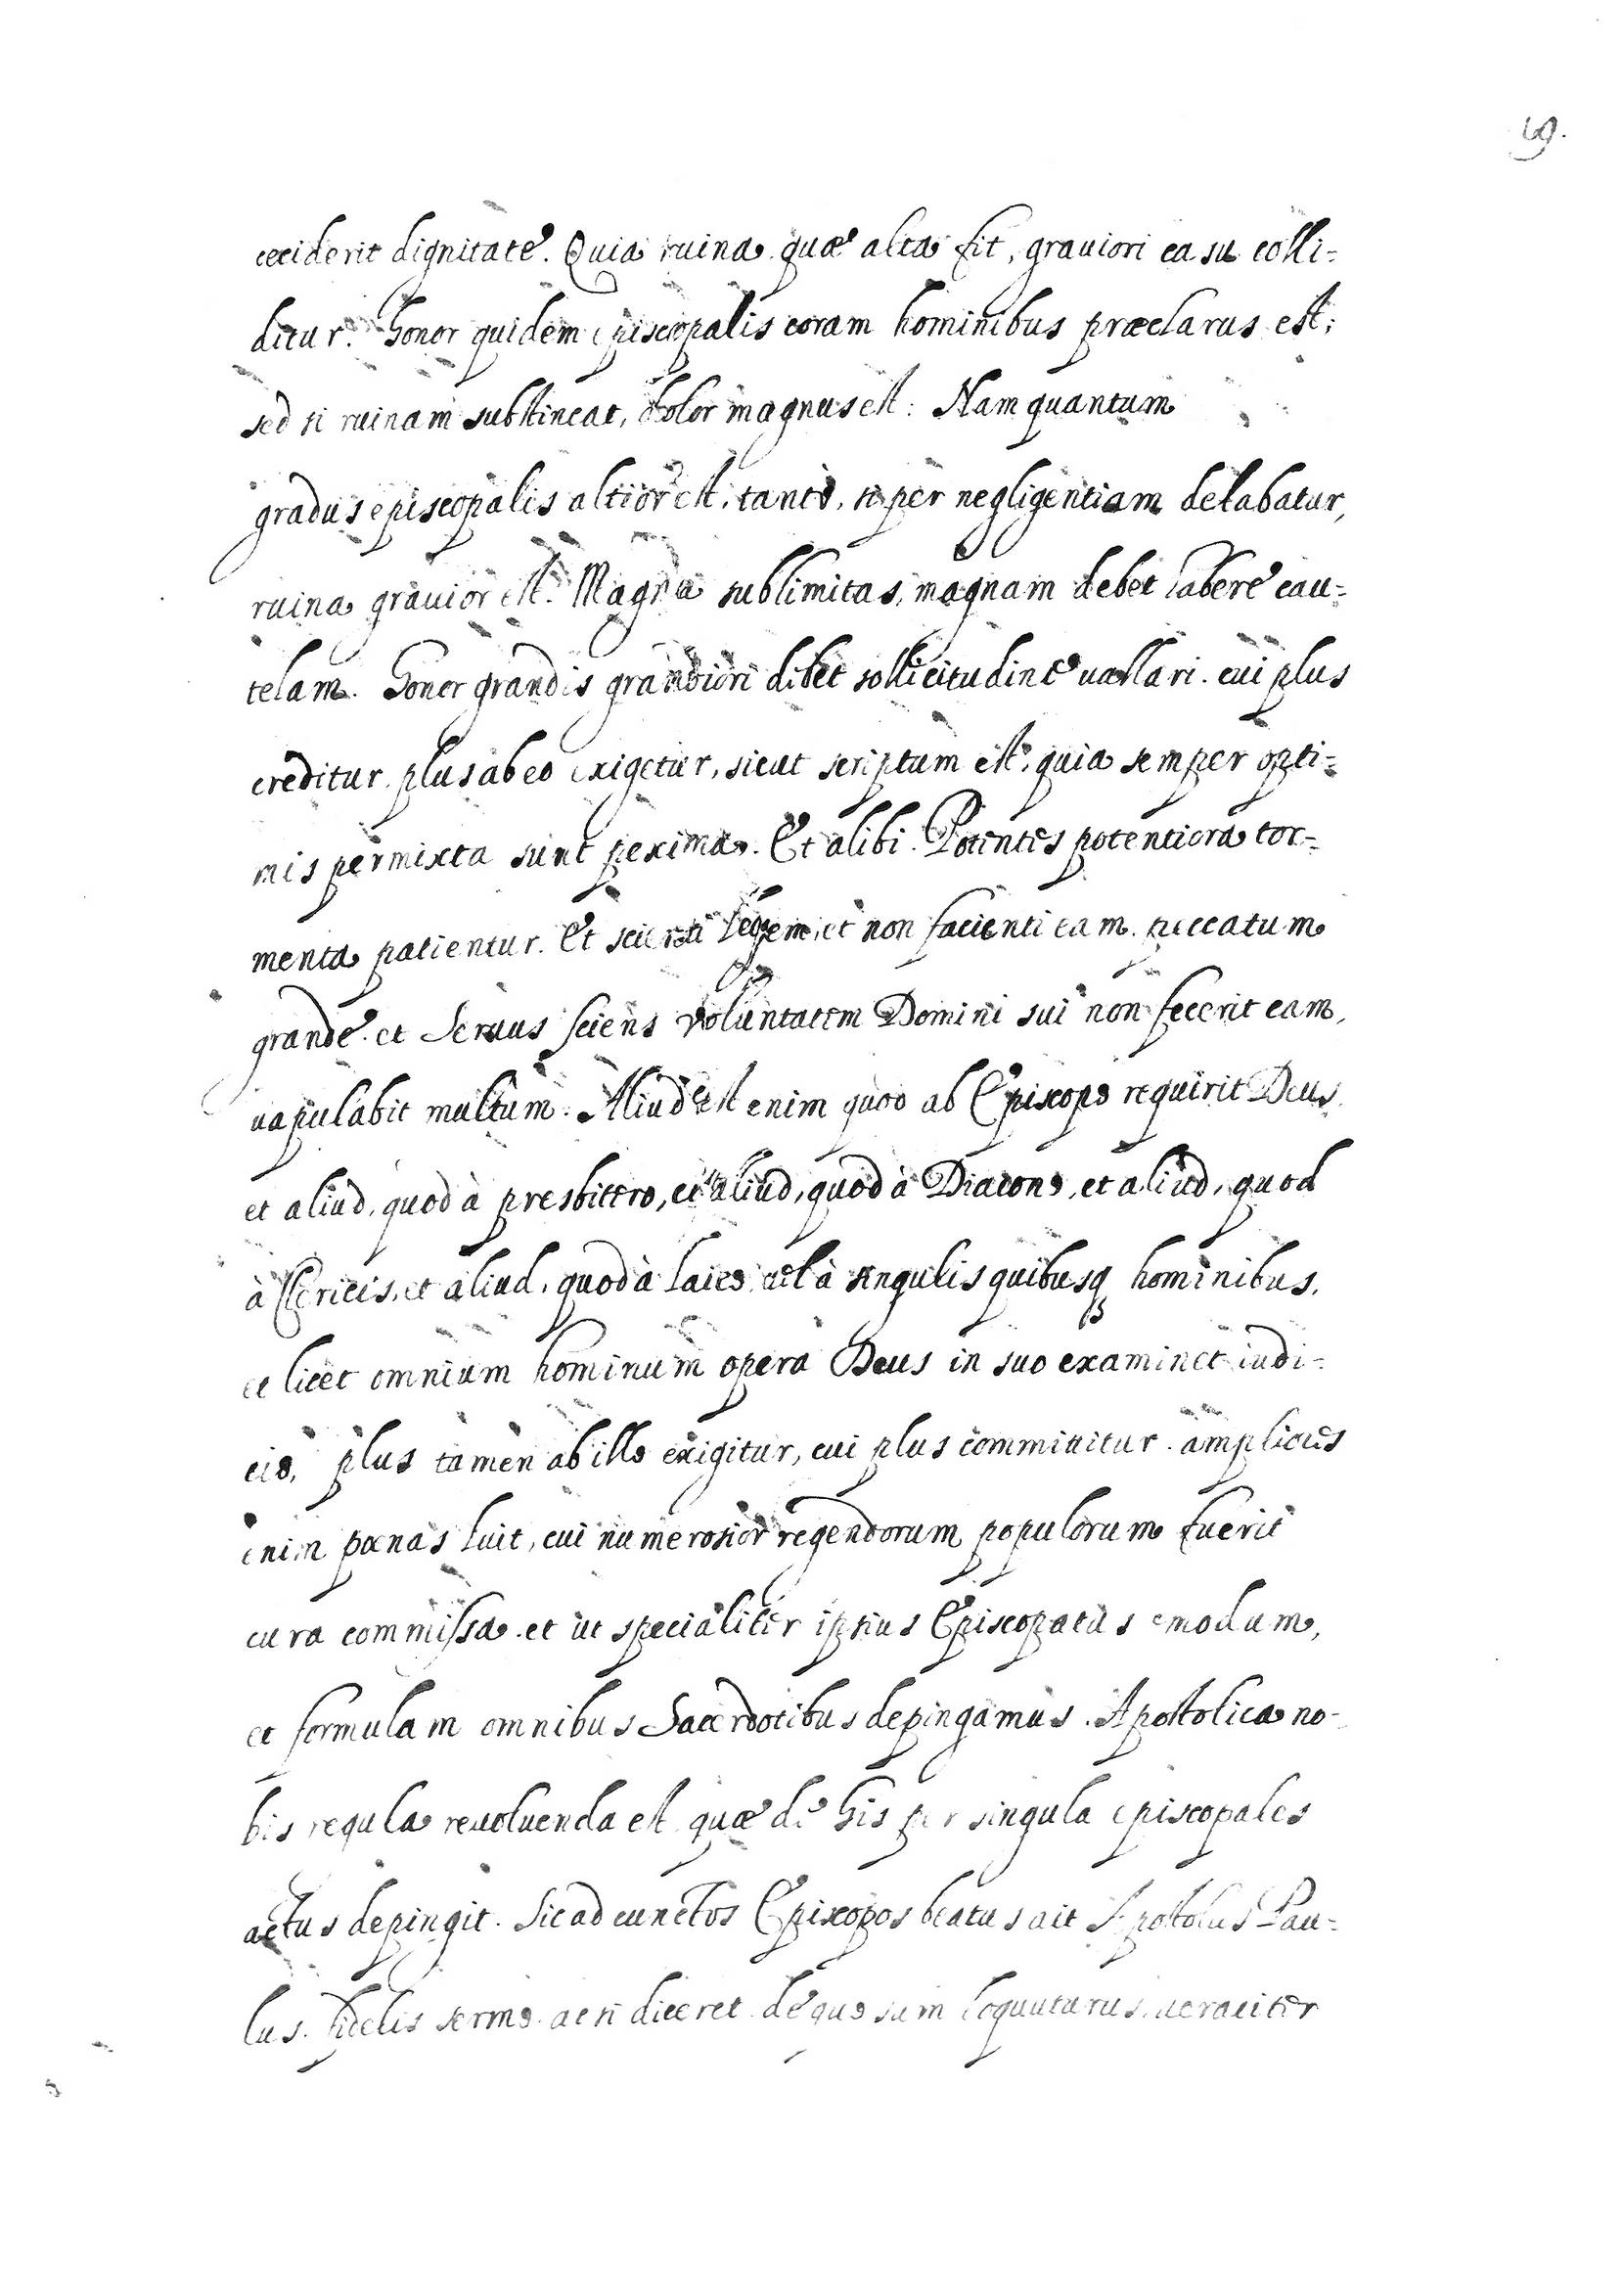 69.
ceciderit dignitate. Quia ruina quæ alta fit, grauiori casu colli=
ditur. Honor quidem episcopalis coram hominibus præclarus est;
sed si ruinam substineat, dolor magnus est: Nam quantum
gradus episcopalis altior est, tantò, si per negligentiam delabatur,
ruina grauior est. Magna sublimitas, magnam debet habere cau=
telam. Honor grandis grandiori debet sollicitudine uallari. cui plus
creditur, plus ab eo exigetur, sicut scriptum est, quia semper opti=
mis permixta sunt pexima. Et alibi. Potentes potentiora tor=
menta patientur. Et scienti legem, et non facienti eam. peccatum
grande. et Seruus sciens voluntatem Domini sui non fecerit eam,
uapulabit multum. Aliud est enim quod ab Episcopo requirit Deus
et aliud, quod à presbitero, et aliud, quod à Diacono, et aliud, quod
à Clericis, et aliud, quod à laico, uel à singulis quibusq hominibus.
et licet omnium hominum opera Deus in suo examinet iudi=
cio, plus tamen ab illo exigitur, cui plus committitur. ampliùs
enim pœnas luit, cui numerosior regendorum populorum fuerit
cura commissa. et ut specialiter ipsius Episcopatus modum,
et formulam omnibus Sacerdotibus depingamus. Apostolica no-
bis regula reuoluenda est quæ de his per singula episcopales
actus depingit. Sic ad cunctos Episcopos beatus ait Apostolus Pau=
lus. fidelis sermo. ac si diceret de quo sum loquuturus. ueraciter